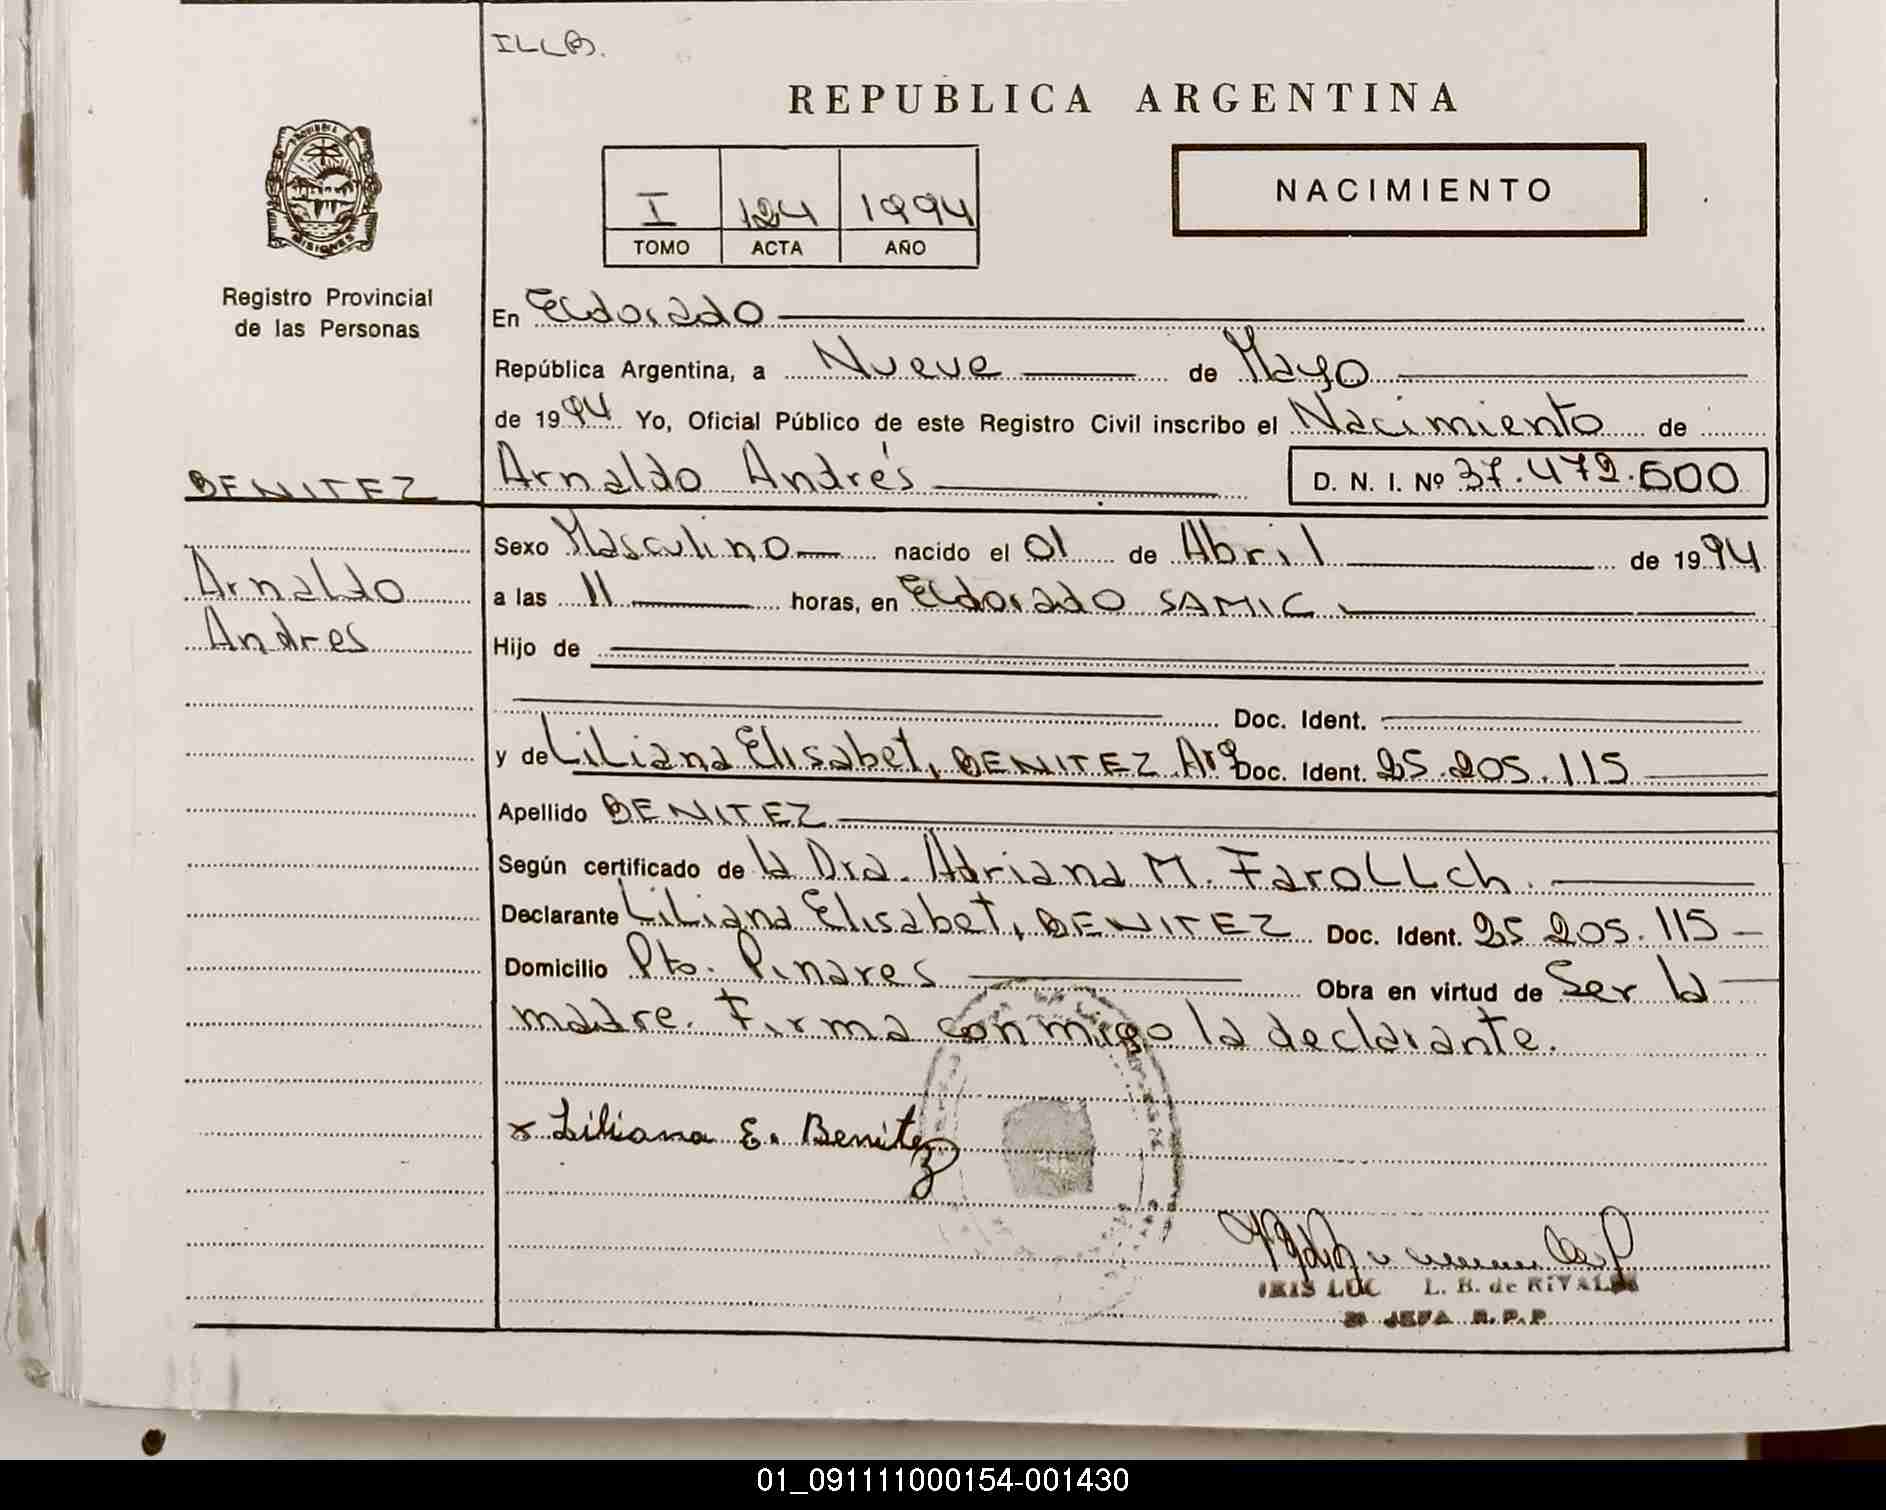 ILLB.
REPUBLICA ARGENTINA
PROVINCIA DE MISIONES
I 124 1994
TOMO ACTA AÑO
NACIMIENTO
Registro Provincial
de las Personas
En Eldorado
República Argentina, a Nueve de Mayo
de 1994 Yo, Oficial Público de este Registro Civil inscribo el Nacimiento de
BENITEZ
Arnaldo Andrés D. N. I. Nº 37.472.600
Sexo Masculino nacido el 01 de Abril de 1994
Arnaldo
a las 11 horas, en Eldorado SAMIC
Andres
Hijo de
Doc. Ident.
y de Liliana Elisabet, BENITEZ Arg Doc. Ident. 25.205.115
Apellido BENITEZ
Según certificado de la Dra. Adriana M. Farollch.
Declarante Liliana Elisabet, BENITEZ Doc. Ident. 25 205.115
Domicilio Pto. Pinares Obra en virtud de Ser la
madre. Firma conmigo la declarante.
x Liliana E. Benitez
IRIS LUC L. B. de RIVALD
JEFA R.P.P
01_091111000154-001430